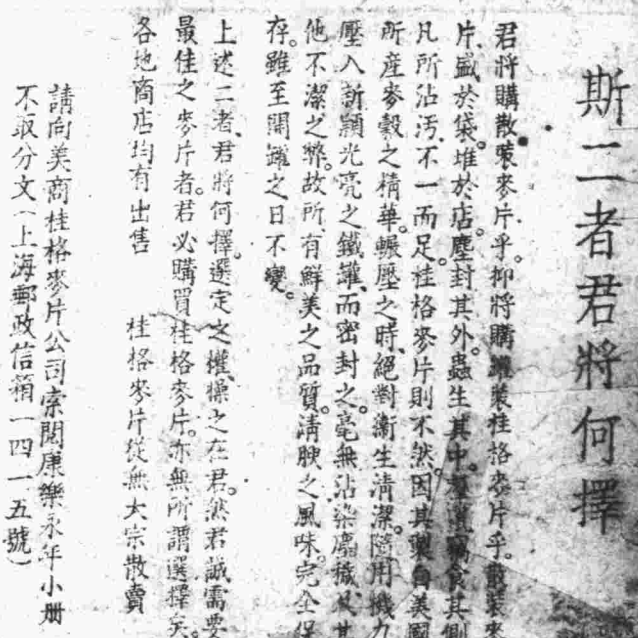 斯二者君將何擇
君將購散裝麥片乎。抑將購罐裝桂格麥片乎。散裝麥
片、盛於袋。堆於店。塵封其外。蟲生其中。竊食其側
凡所沾汚、不一而足。桂格麥片則不然。因其製自美國
所產麥穀之精華。輾壓之時、絕對衞生清潔。隨用機力
壓入新穎光亮之鐵罐、而密封之。毫無沾染塵穢、及其
他不潔之弊。故所有鮮美之品質。清腴之風味。完全保
存。雖至開罐之日不變。
上述二者、君將何擇。選定之權、操之在君。然君誠需要
最佳之麥片者。君必購買桂格麥片。亦無所謂選擇矣。
各地商店均有出售 桂格麥片從無大宗散賣
請向美商桂格麥片公司索閱康樂永年小册
不取分文（上海郵政信箱一四一五號）